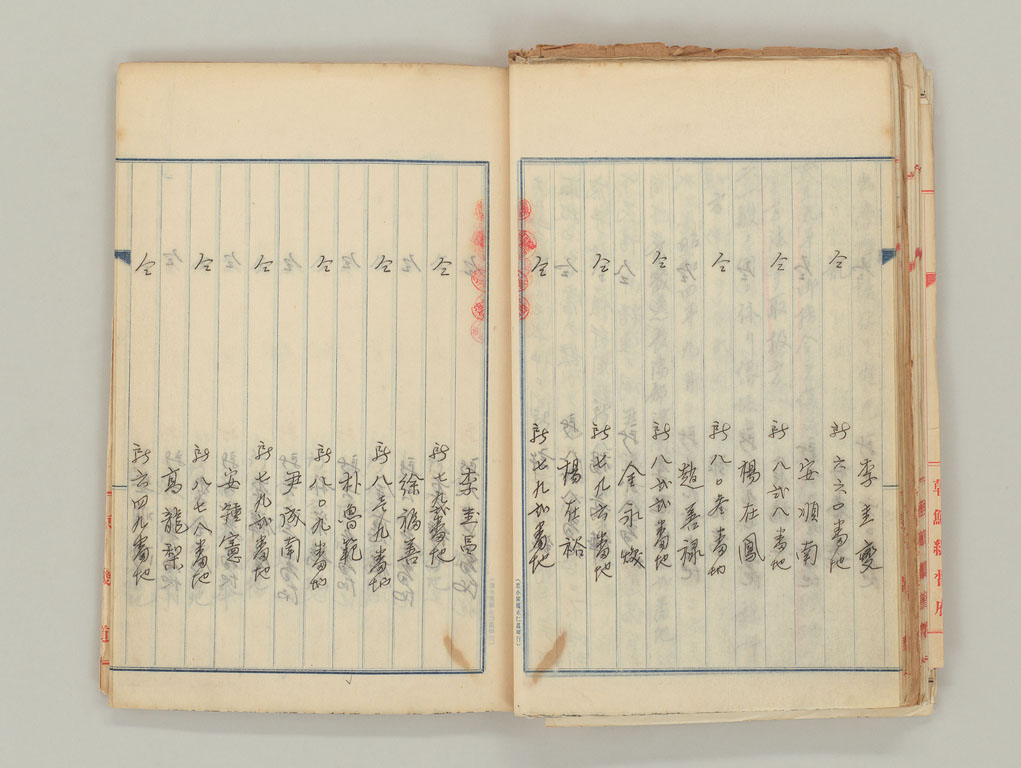 李圭夔
仝 新六六〇番地
安順南
仝 新八弐八番地
楊在鳳
仝 新八〇参番地
趙善禄
仝 新八弐弐番地
金永燦
仝 新七九六番地
楊在裕
仝 新七九弐番地
李圭昌
仝 新七九弐番地
徐福善
仝 新八三九番地
朴魯範
仝 新八〇九番地
尹成南
仝 新七九弐番地
安鍾憲
仝 新八七八番地
高龍梨
仝 新六四九番地
朝鮮總督府
道